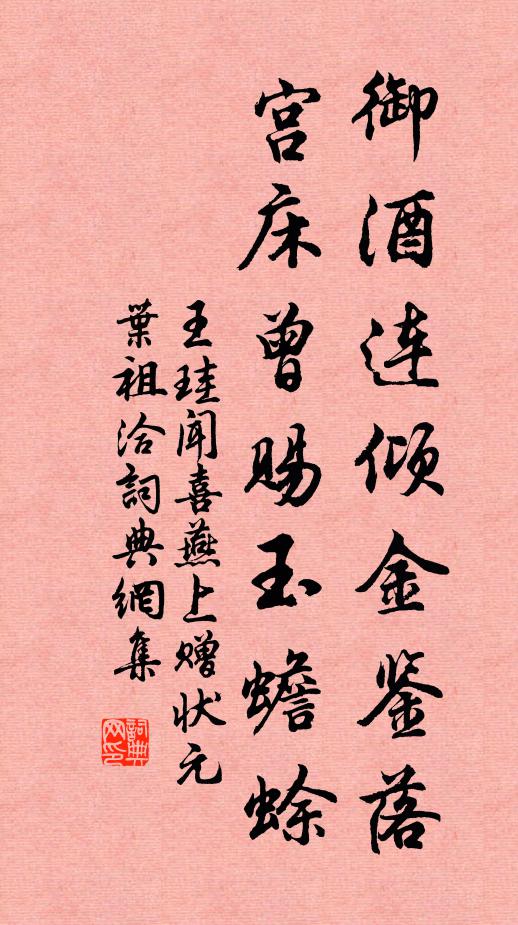 御酒连倾金鉴落
宫床曾赐玉蟾蜍
王珪闻喜燕上赠状元
葉祖洽詞典網集
詞典网印